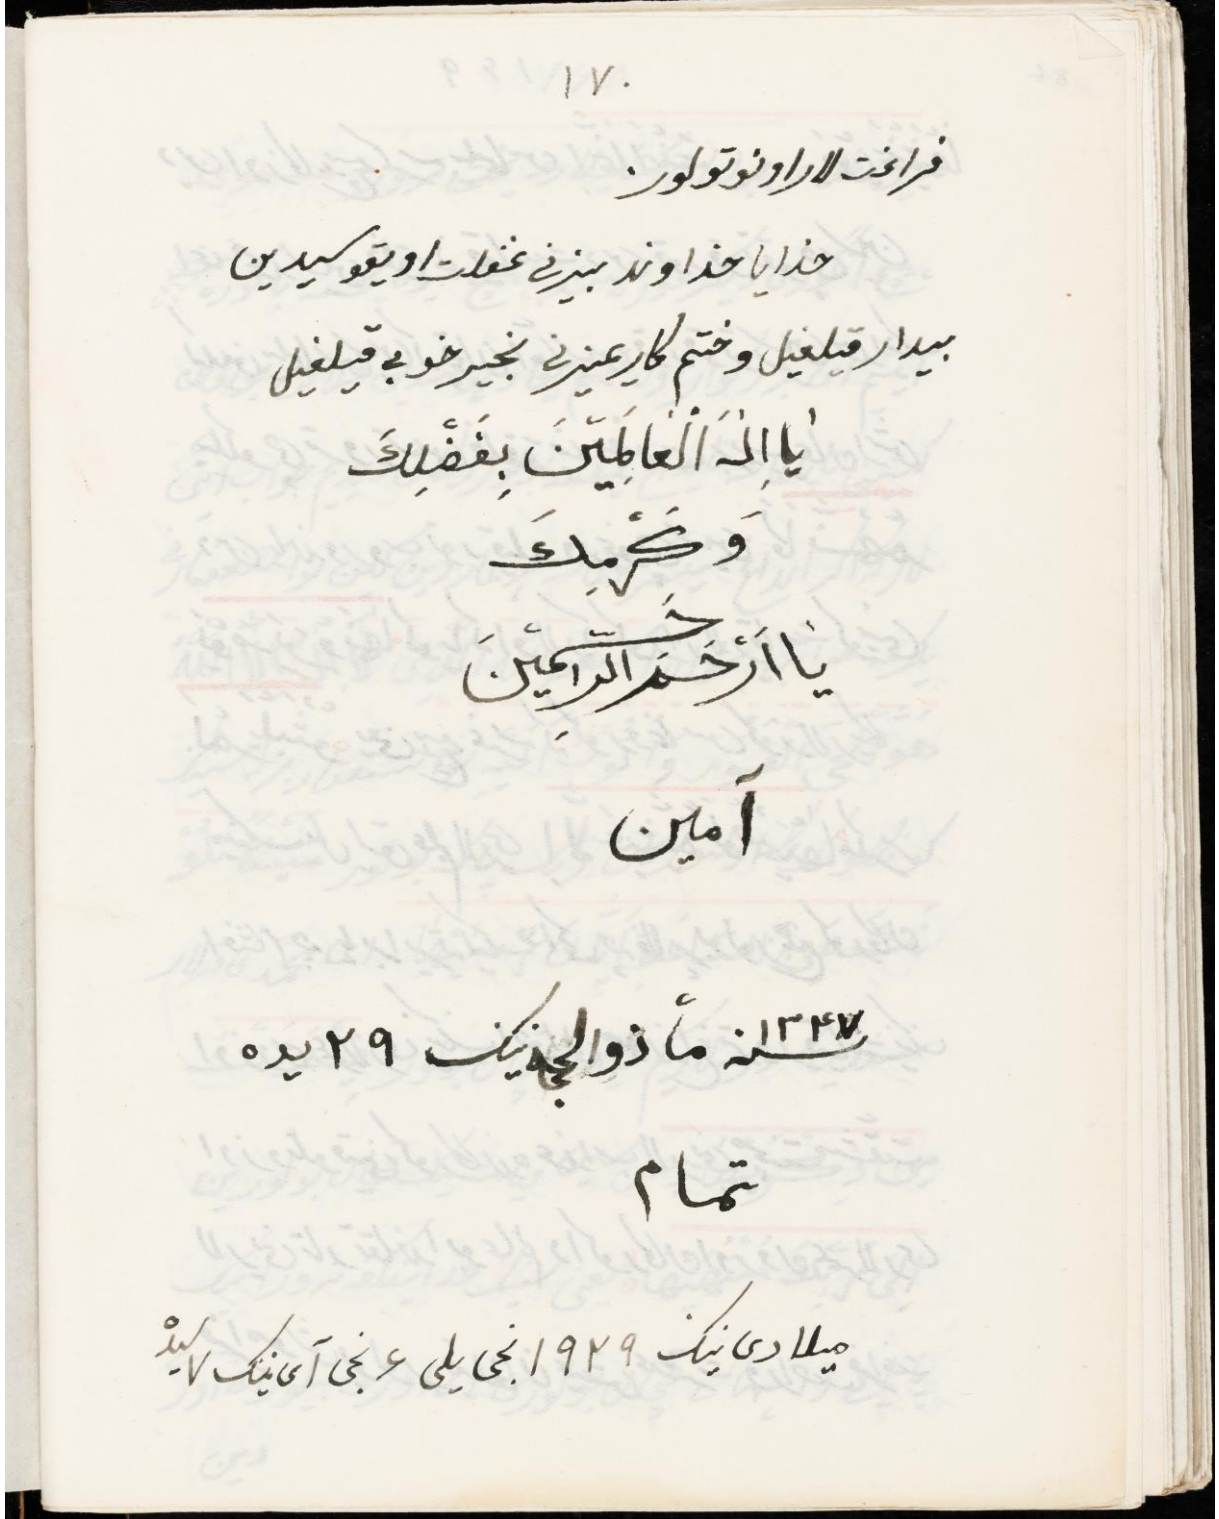 ١٧٠
فراغت لار اونوتولور.
خدایا خداوند بیزنی غفلت اویقوسیدین
بیدار قیلغیل و ختم کاریمیزنی بخیر خوبی قیلغیل
یَا اِلٰهَ الْعَالَمِیْنَ بِفَضْلِكَ
وَ كَرَمِكَ
یَا اَرْحَمَ الرَّاحِمِیْنَ
آمین
سنه ١٣٤٧ ماه ذوالحجه نینک ٢٩ یده
تمام
میلادی نینک ١٩٢٩ نجی یلی ۶ نجی آی نینک ٧ سیده